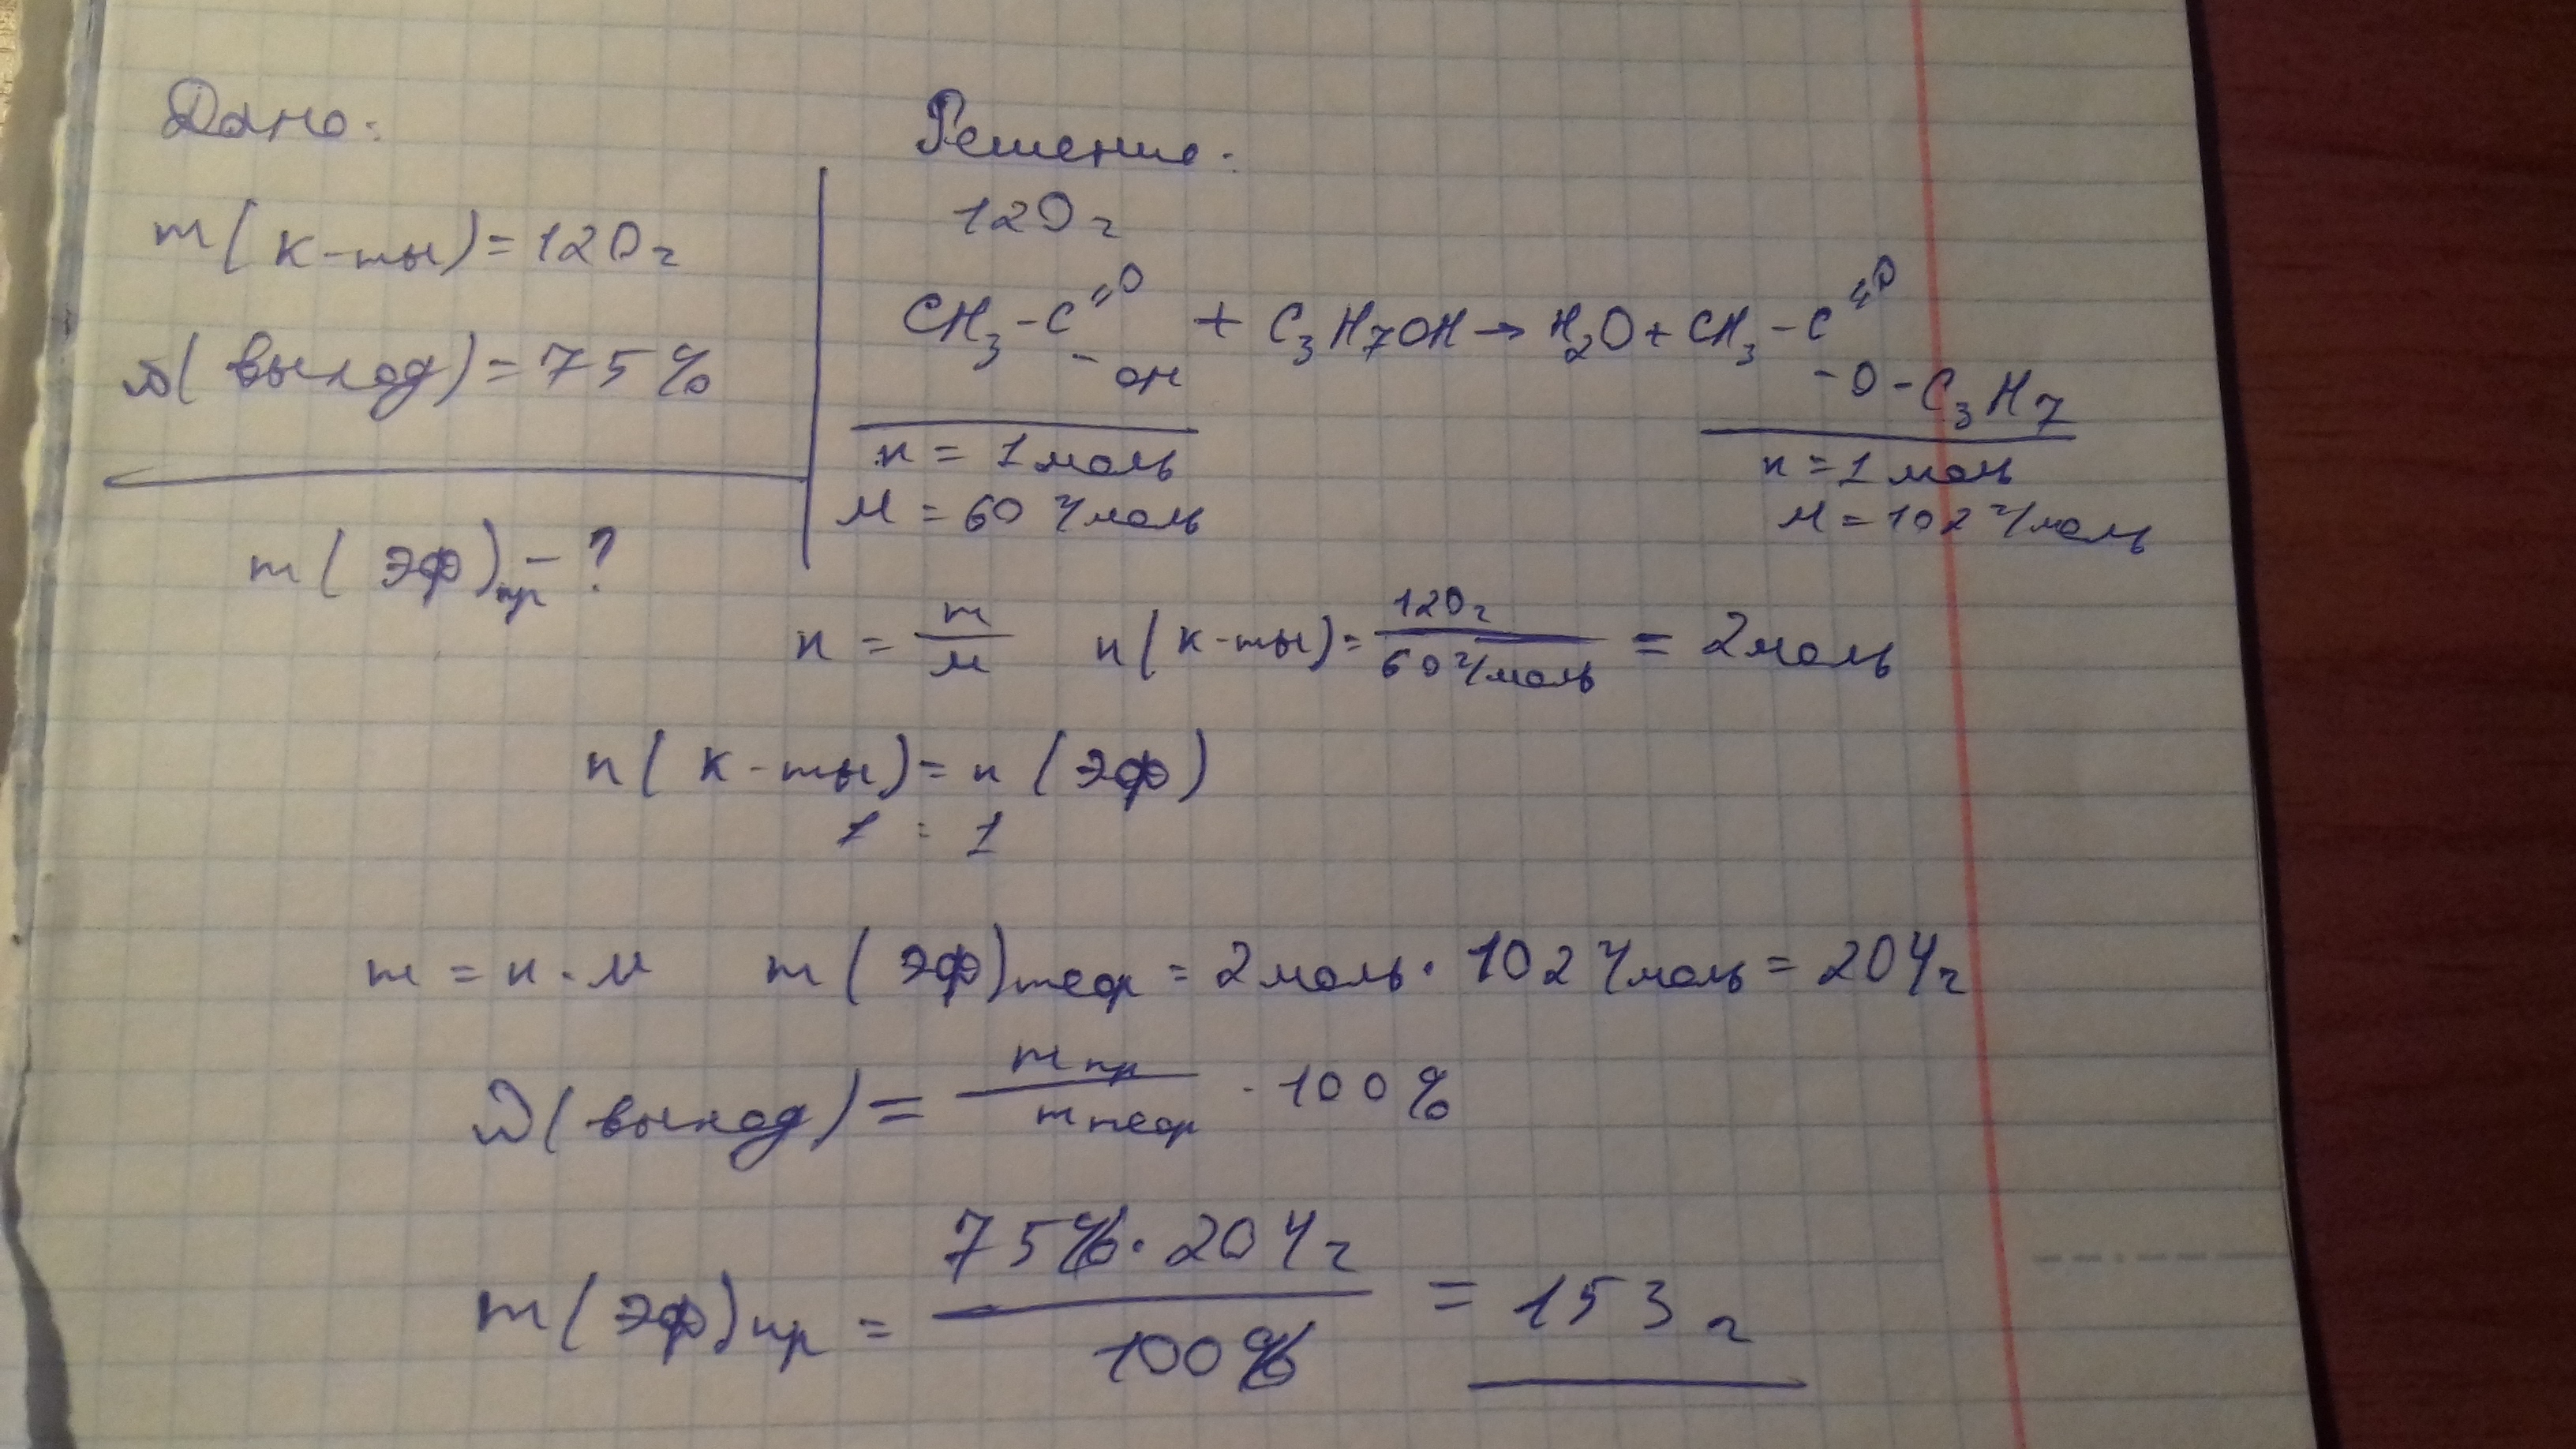 Дано:
m(к-ты)=120г
ω(выход)=75%
m(эф)пр-?
Решение:
120г
CH₃-C=O + C₃H₇OH→H₂O+CH₃-C=O
-OH -O-C₃H₇
n=1моль n=1моль
M=60г/моль M=102г/моль
n=m/M n(к-ты)=120г/60г/моль=2моль
n(к-ты)=n(эф)
1:1
m=n·M m(эф)теор=2моль·102г/моль=204г
ω(выход)=mпр/mтеор·100%
m(эф)пр=75%·204г/100%=153г